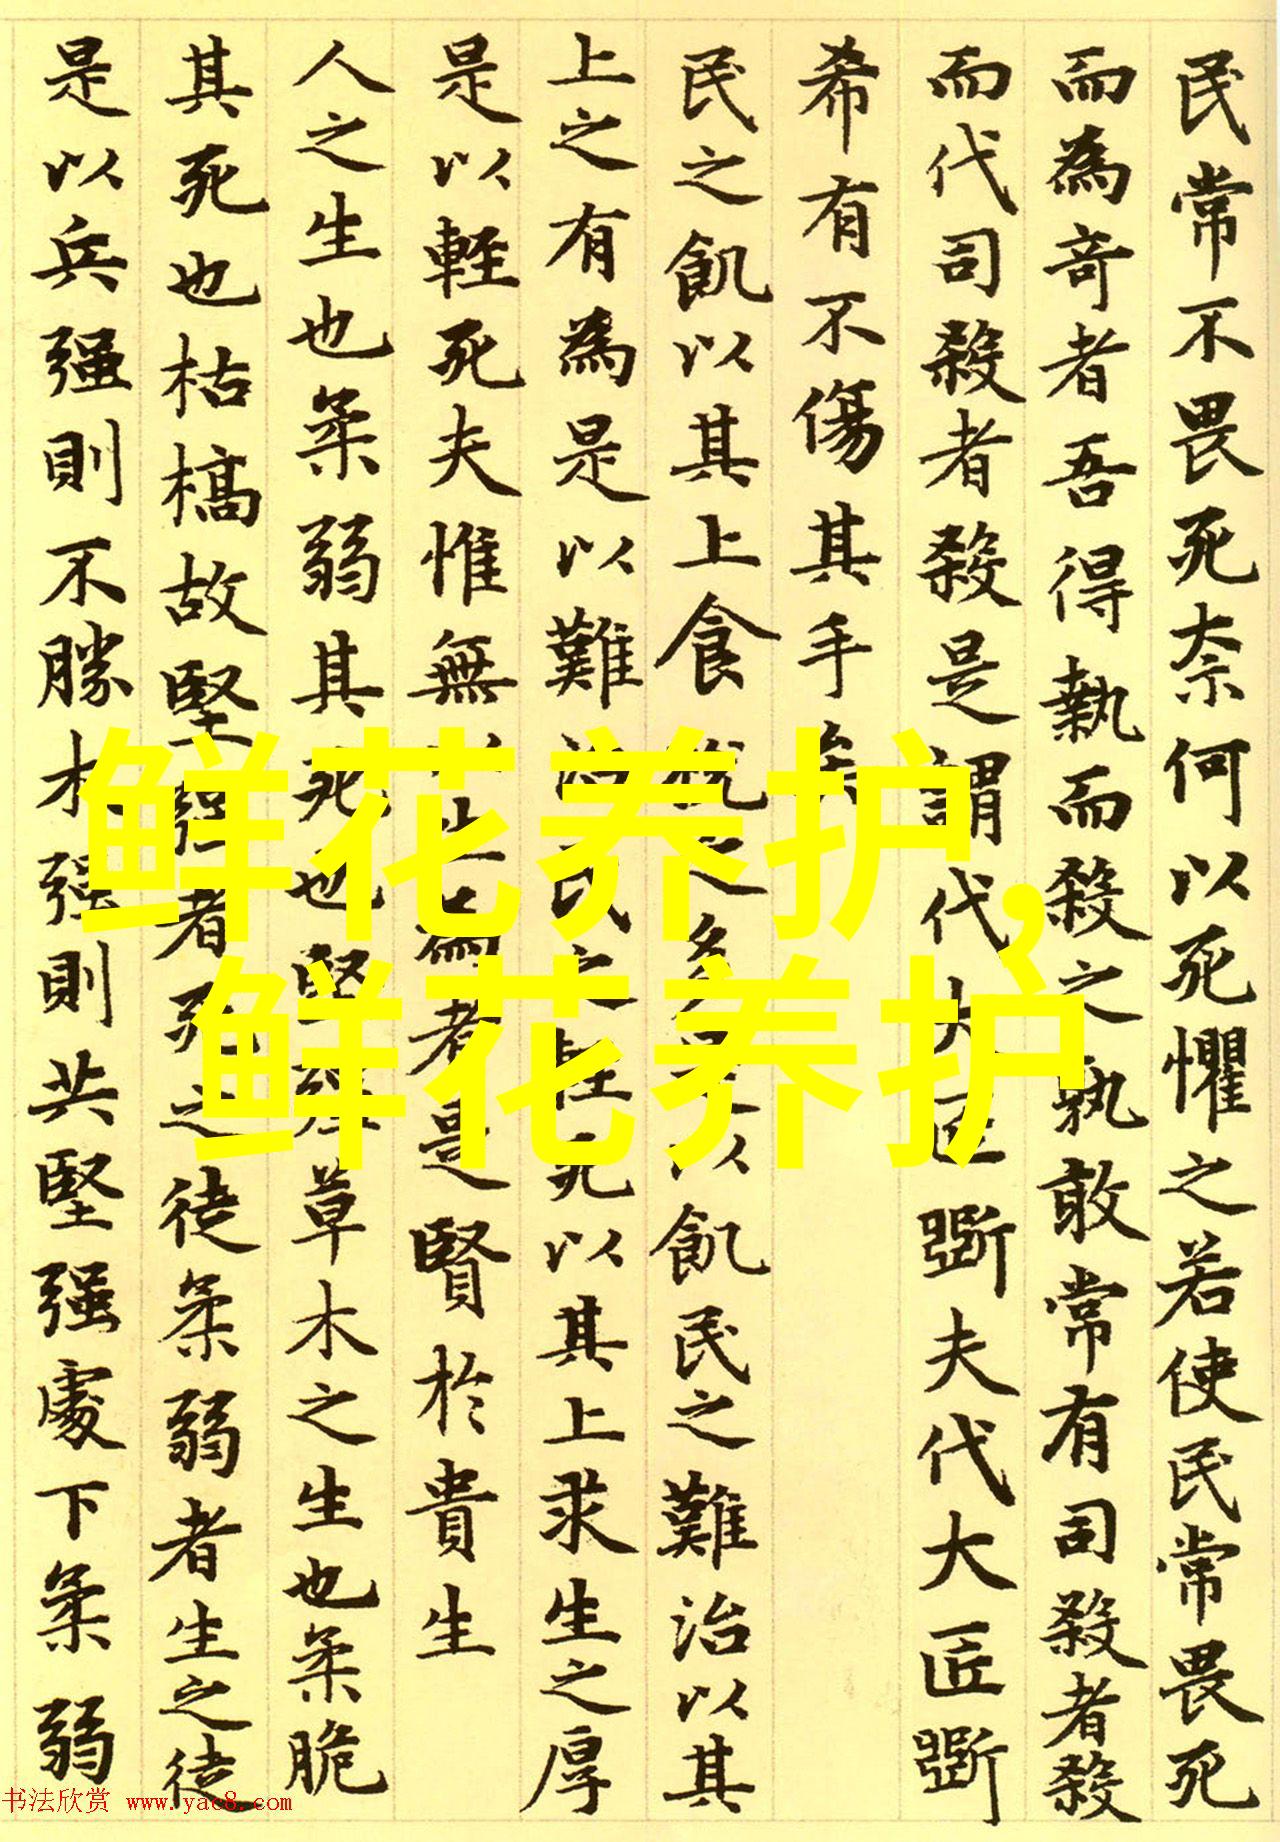 民常不畏死柰何以死懼之若使民常畏死
而為奇者吾得執而殺之孰敢常有司殺者殺
而代司殺者殺是謂代大匠斲夫代大匠斲
希有不傷其手矣
民之飢以其上食稅之多是以飢民之難治以其
上之有為是以難治民之輕死以其上求生之厚
是以輕死夫惟無以生為者是賢於貴生
人之生也柔弱其死也堅強草木之生也柔脆
其死也枯槁故堅強者死之徒柔弱者生之徒
是以兵强則不勝木强則共堅强處下柔弱
鲜花养护,
鲜花养护
书法欣赏 www.yac8.com